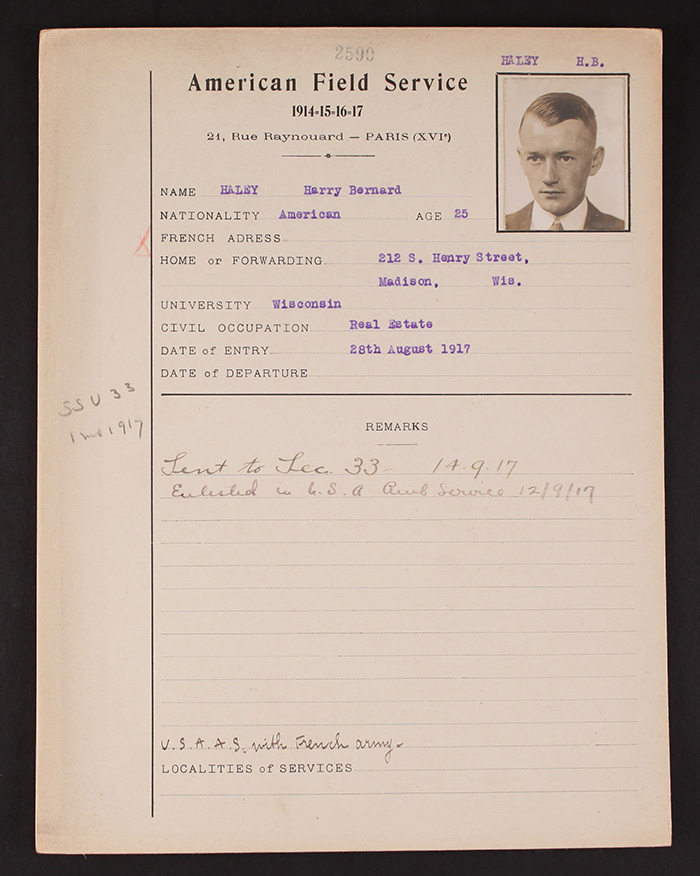 2590
HALEY H.B.
American Field Service
1914-15-16-17
21, Rue Raynouard — PARIS (XVIe)
NAME HALEY Harry Bernard
NATIONALITY American AGE 25
FRENCH ADRESS
HOME or FORWARDING 212 S. Henry Street,
Madison, Wis.
UNIVERSITY Wisconsin
CIVIL OCCUPATION Real Estate
DATE of ENTRY 28th August 1917
DATE of DEPARTURE
SSU 33
1 mo 1917
REMARKS
Sent to Sec. 33 14.9.17
Enlisted in U.S.A Amb Service 12/9/17
U.S.A.A.S. with French army-
LOCALITIES of SERVICES